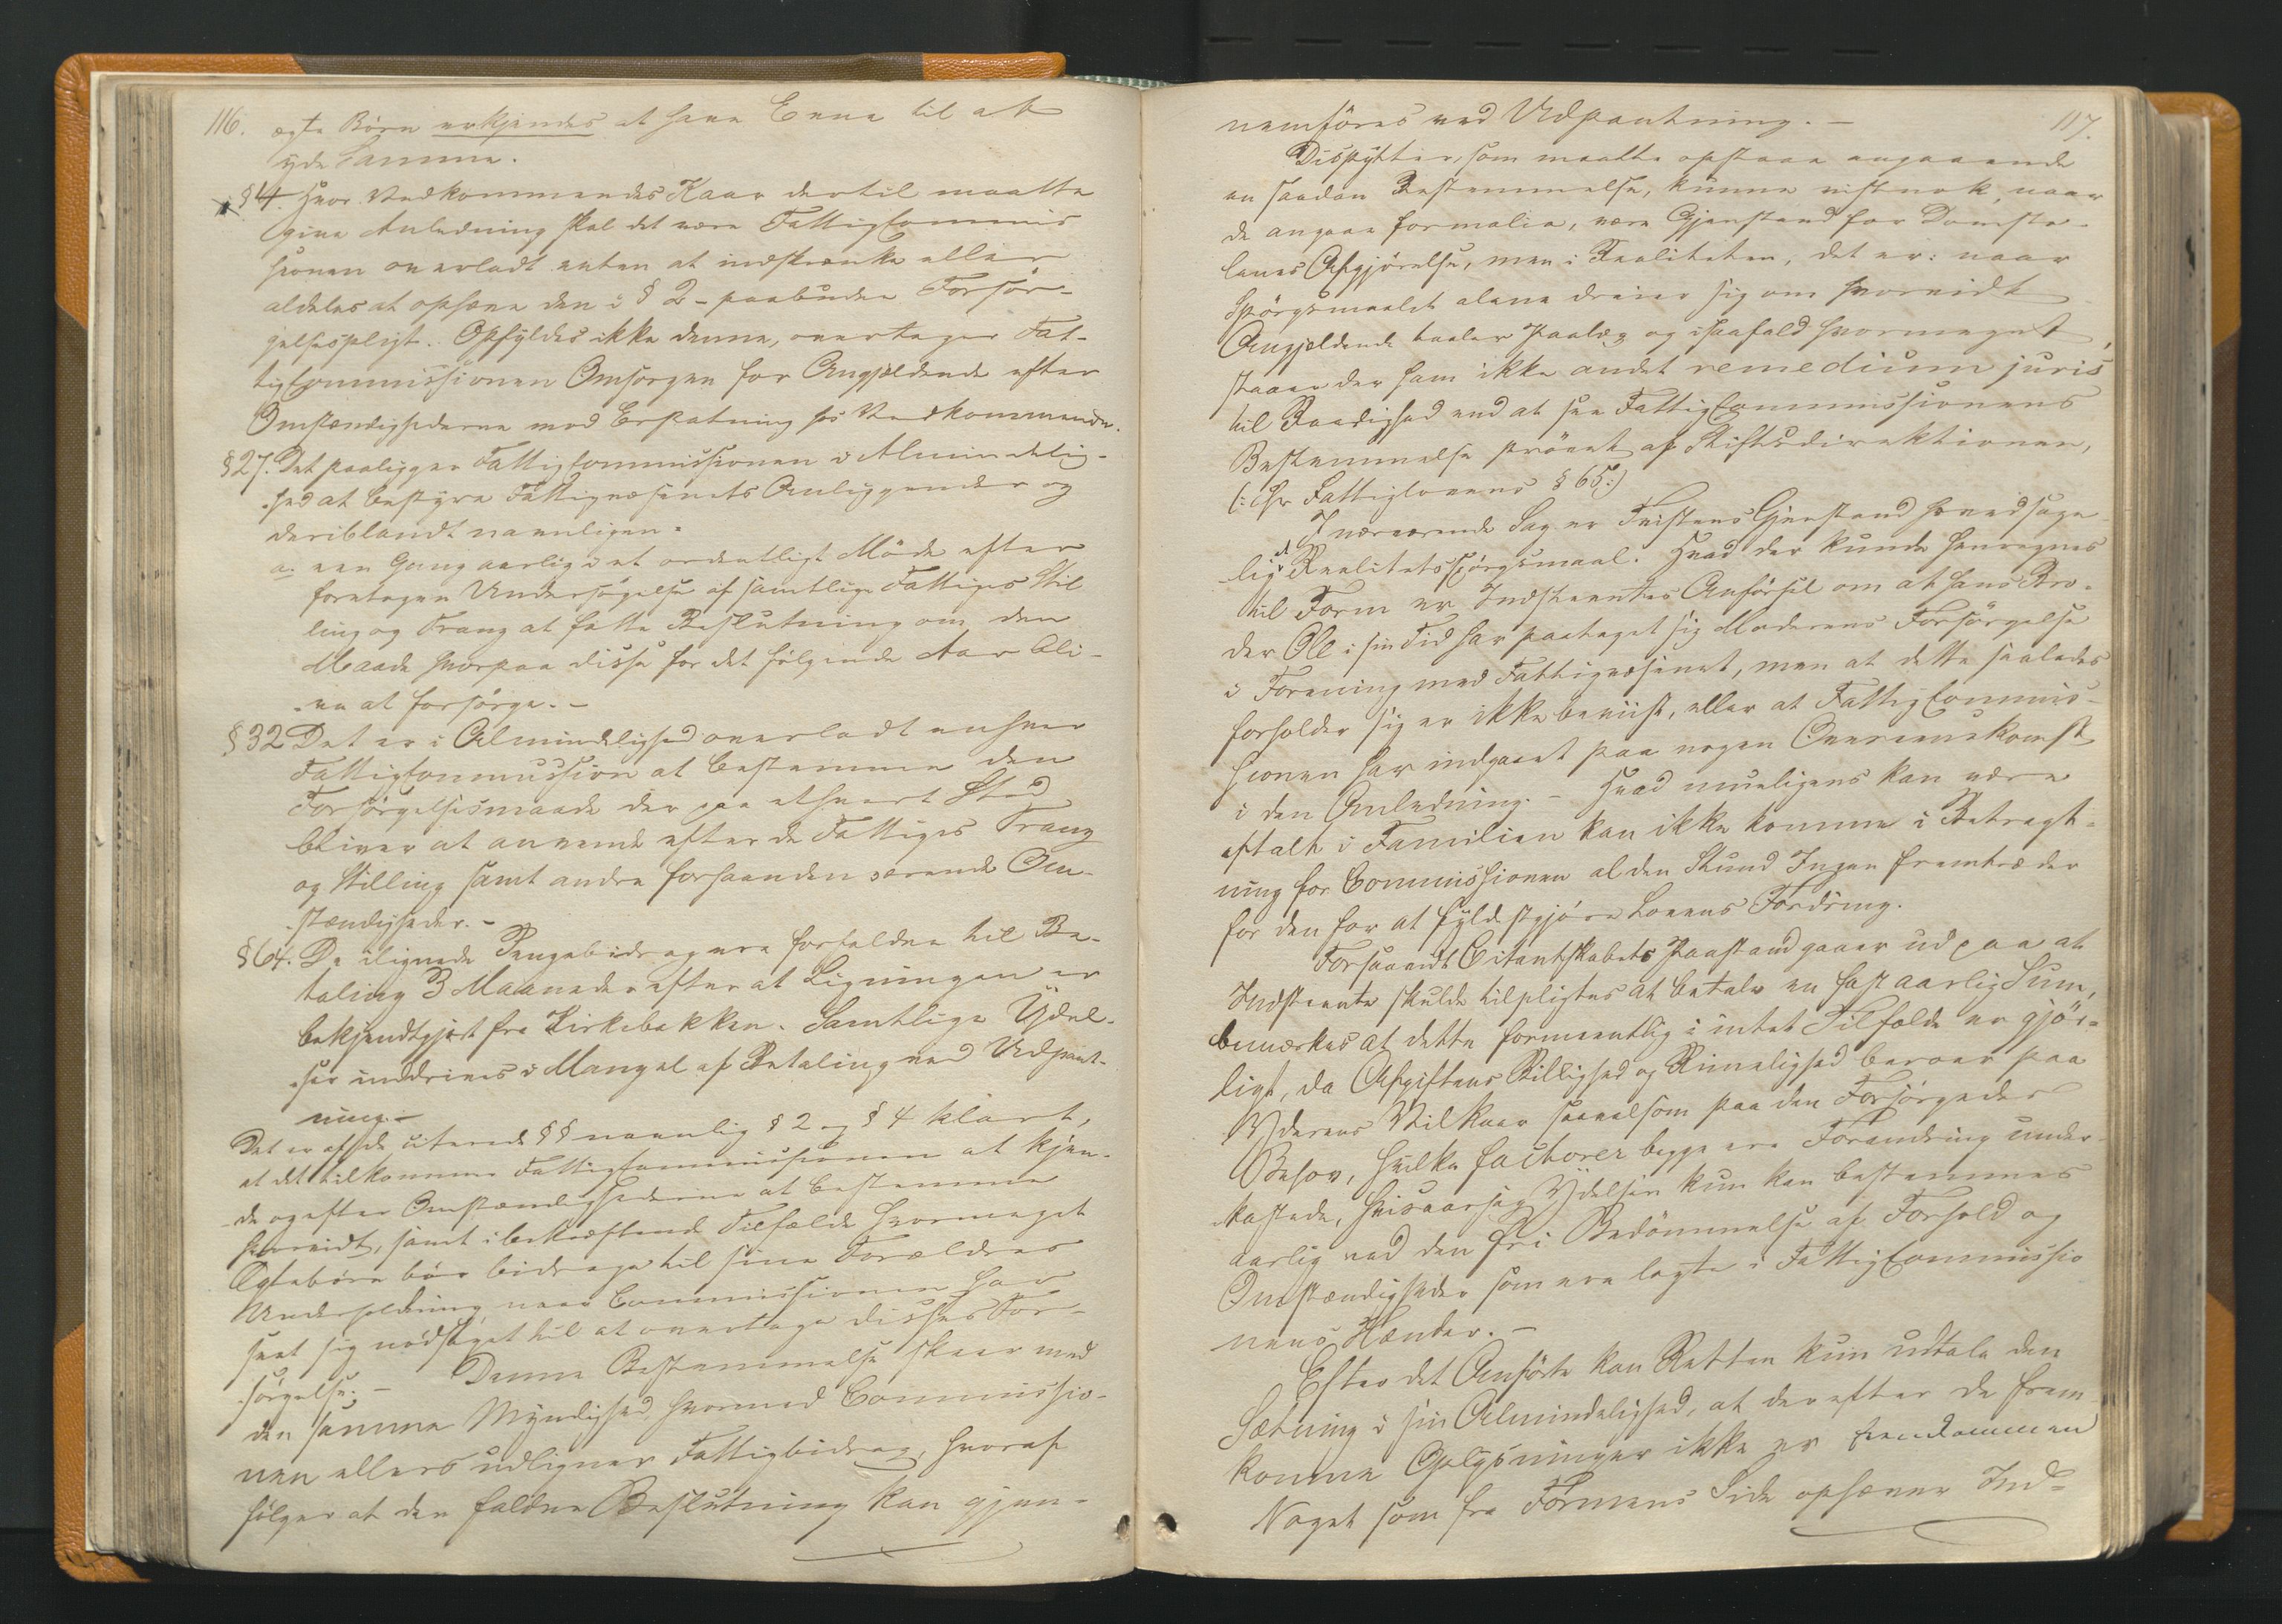 116.
ægte Børn erkjendes at have Evne til at
yde Samme.
§ 4. Hvor Vedkommendes Kaar dertil maatte
give Anledning skal det være Fattigcommis
sionen overladt enten at indskrænke eller
aldeles at ophæve den i § 2 - paabudne Forsør-
gelsespligt. Opfyldes ikke denne, overtager Fat-
tigcommissionen Omsorgen for Angjældende efter
Omstændighederne mod Erstatning hos Vedkommende.
§ 27. Det paaligger Fattigcommissionen i Almindelig-
hed at bestyre Fattigvæsenets Anliggender og
deriblandt navnligen:
a. een Gang aarlig i et ordentligt Møde efter
foretagen Undersøgelse af samtlige Fattiges Stil
ling og Trang at fatte Beslutning om den
Maade hvorpaa disse for det følgende Aar bli-
ve at forsørge. -
§ 32 Det er i Almindelighed overladt enhver
Fattigcommission at bestemme den
Forsørgelsesmaade der paa ethvert Sted
bliver at anvende efter de Fattiges Trang
og Stilling samt andre forhaanden værende Om-
stændigheder. -
§ 64. De lignede Pengebidrag ere forfaldne til Be-
taling 3 Maaneder efter at Ligningen er
bekjendtgjort fra Kirkebakken. Samtlige Ydel-
ser inddrives i Mangel af Betaling ved Udpant-
ning. -
Det er af de citerede §§ navnlig § 2 og § 4 klart,
at det tilkommer Fattigcommissionen at kjen-
de og efter Omstændighederne at bestemme
hvorvidt, samt i bekræftende Tilfælde hvormeget
Ægtebørn bør bidrage til sine Forældres
Underholdning naar Commissionen har
seet sig nødsaget til at overtage disses For-
sørgelse. - Denne Bestemmelse skeer med
den samme Myndighed hvormed Commissio-
nen ellers udligner Fattigbidrag, hvoraf
følger at den faldne Beslutning kan gjen-
117.
nemføres ved Udpantning. -
Disputter, som maatte opstaae angaaende
en saadan Bestemmelse, kunne vistnok, naar
de angaae formalia, være Gjenstand for Domsto-
lenes Afgjørelse, men i Realiteten, det er: naar
Spørgsmaalet alene dreier sig om hvorvidt
Angjældende taaler Paalæg og isaafald hvormeget,
staaer der ham ikke andet remedium juris
til Raadighed end at see Fattigcommissionens
Bestemmelse prøvet af Stiftsdirektionen,
(: cfr Fattiglovens § 65:)
I nærværende Sag er Tvistens Gjenstand hovedsage
lig et Realitetsspørgsmaal. Hvad der kunde henregnes
til Form er Indstevntes Anførsel om at hans Bro-
der Ole i sin Tid har paataget sig Moderens Forsørgelse
i Forening med Fattigvæsenet, men at dette saaledes
forholder sig er ikke beviist, eller at Fattigcommis-
sionen har indgaaet paa nogen Overeenskomst
i den Anledning. - Hvad mueligens kan være
aftalt i Familien kan ikke komme i Betragt-
ning for Commissionen al den Stund Ingen fremtræder
for den for at fyldestgjøre Lovens Fordring.
Forsaavidt Citantskabets Paastand gaaer ud paa at
Indstevnte skulde tilpligtes at betale en fast aarlig Sum,
bemærkes at dette formeentlig i intet Tilfælde er gjør-
ligt, da Afgiftens Billighed og Rimelighed beroer paa
Yderens Vilkaar saavelsom paa den Forsørgedes
Behov, hvilke factorer begge ere Forandring under
kastede, hvisaarsag Ydelsen kun kan bestemmes
aarlig ved den fri Bedømmelse af Forhold og
Omstændigheder som ere lagte i Fattigcommissio
nens Hænder. -
Efter det Anførte kan Retten kun udtale den
Sætning i sin Almindelighed, at der efter de frem
komne Oplysninger ikke er
Noget som fra Formens Side ophæver Ind-